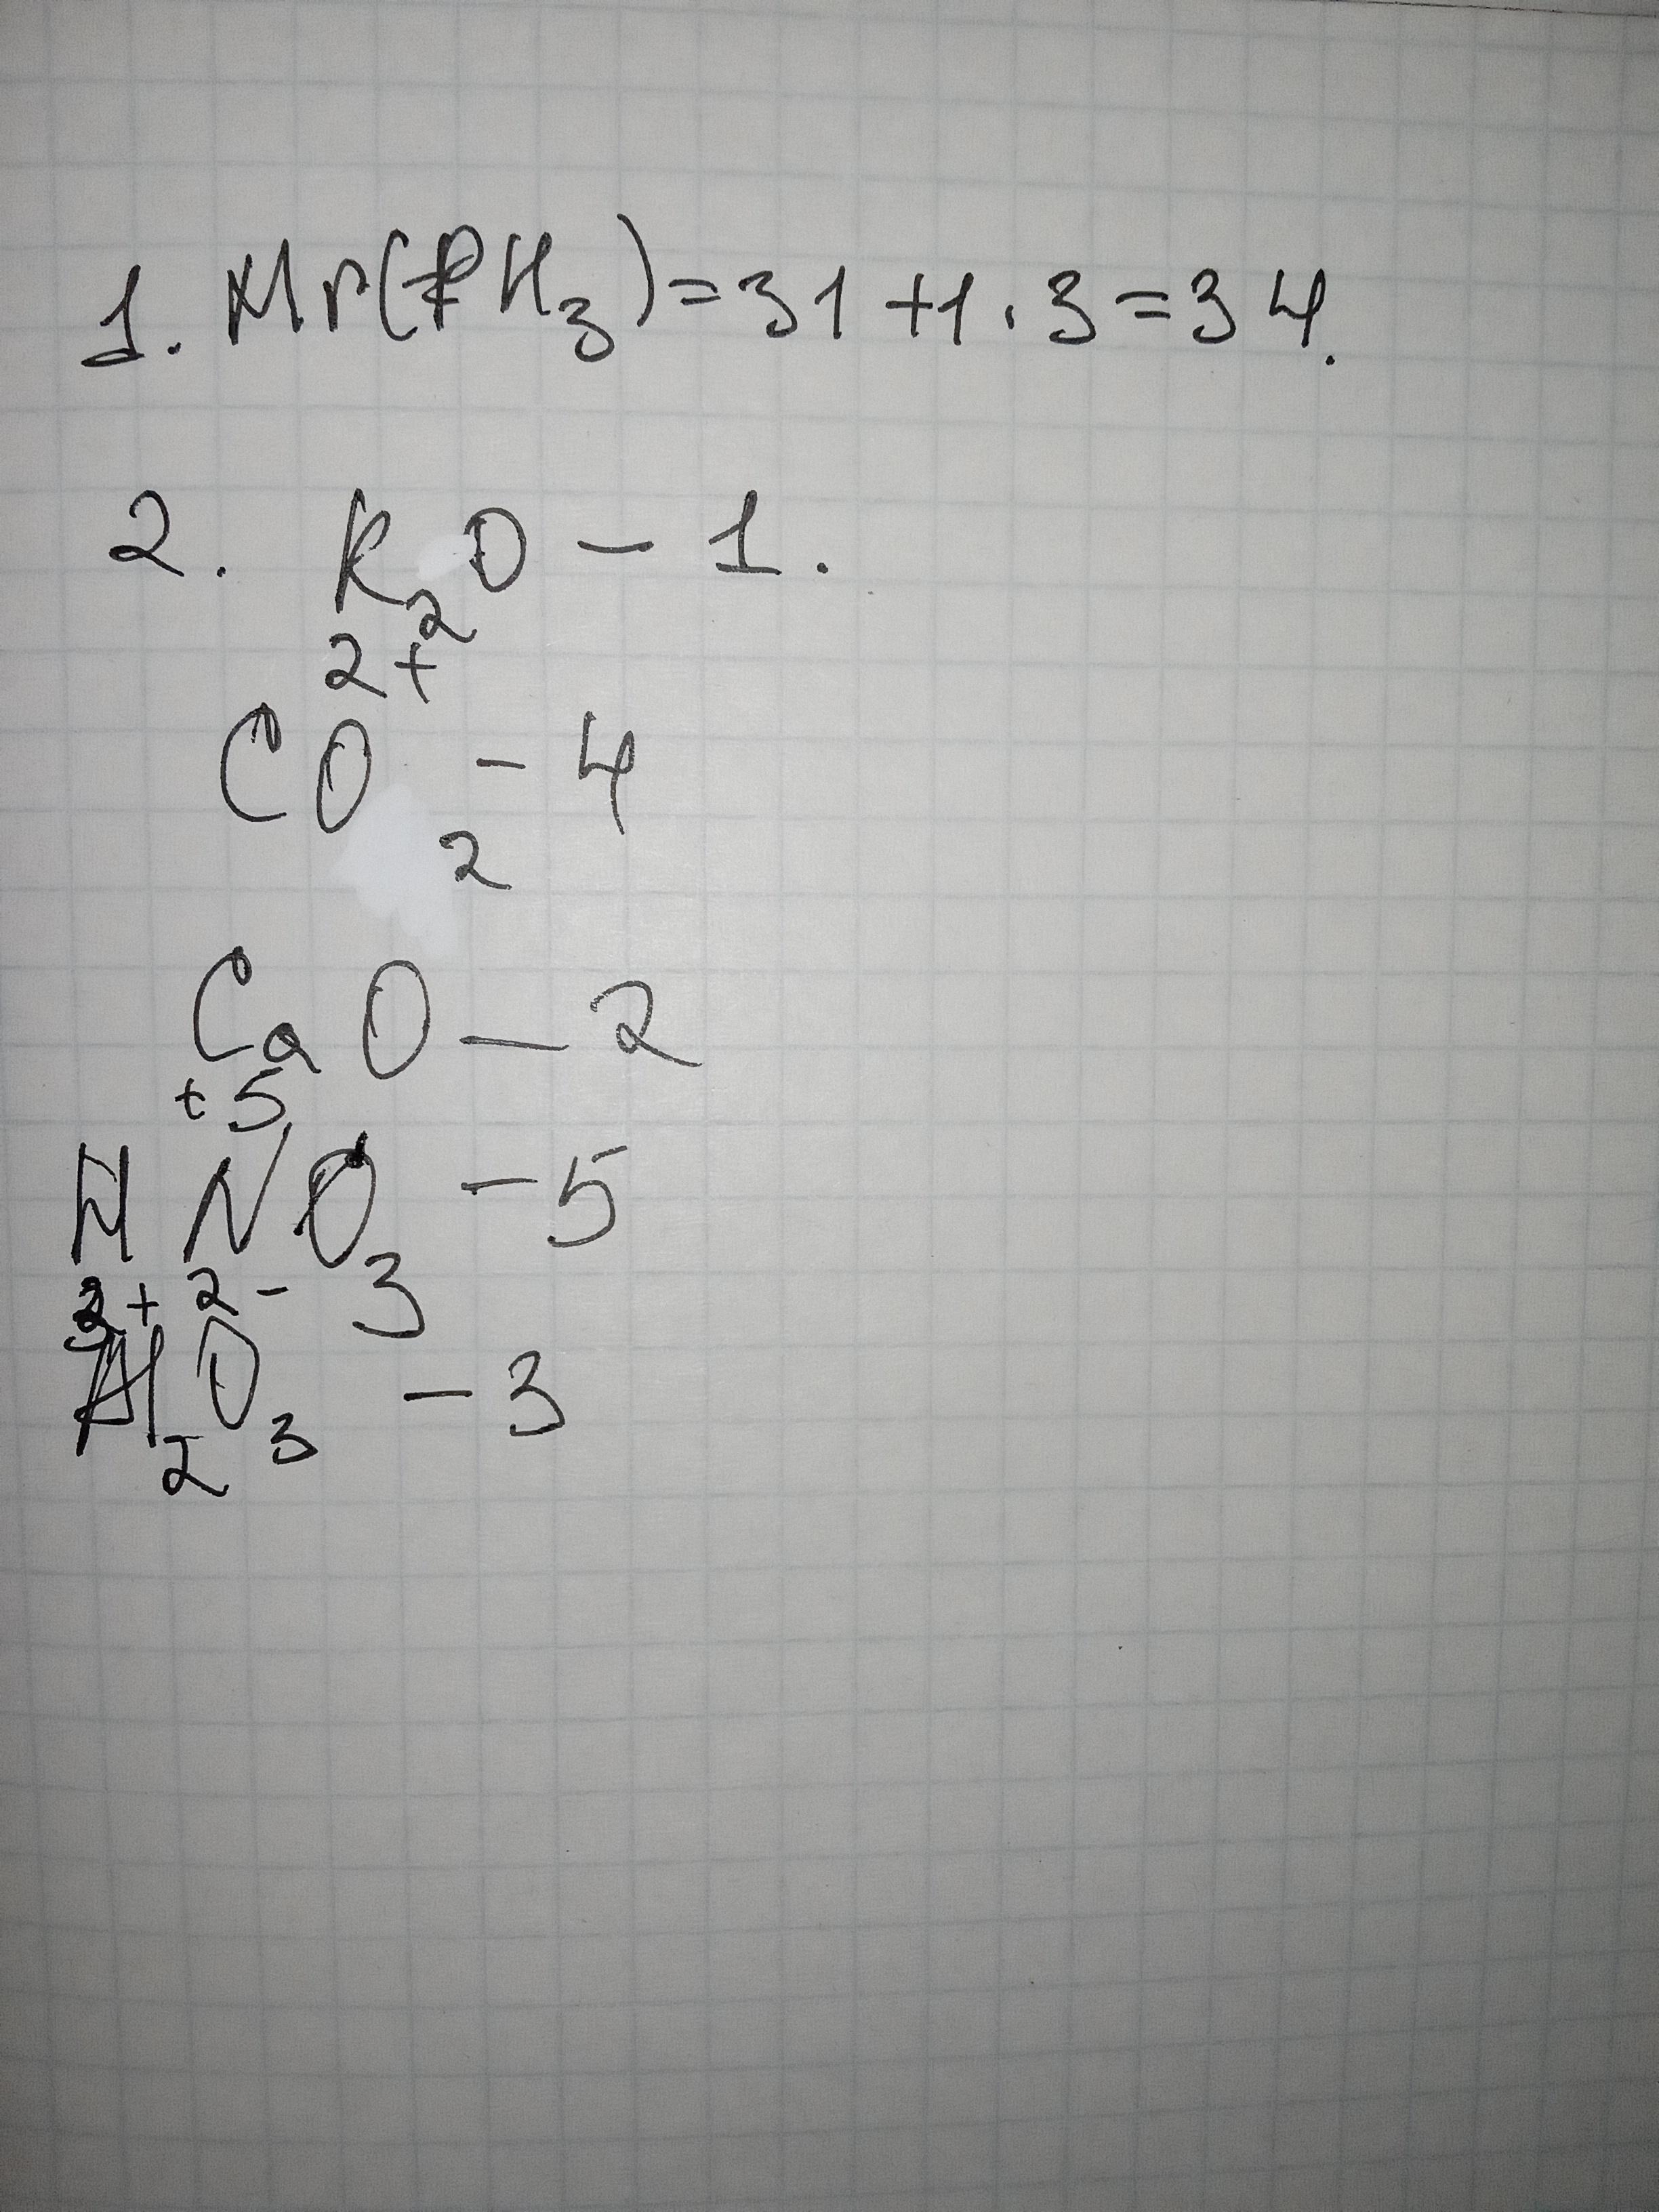 1. Mr(PH3)=31+1·3=34.
2. K2O - 1.
2+
CO2 - 4
CaO - 2
+5
HNO3 - 5
3+ 2-
Al2O3 - 3